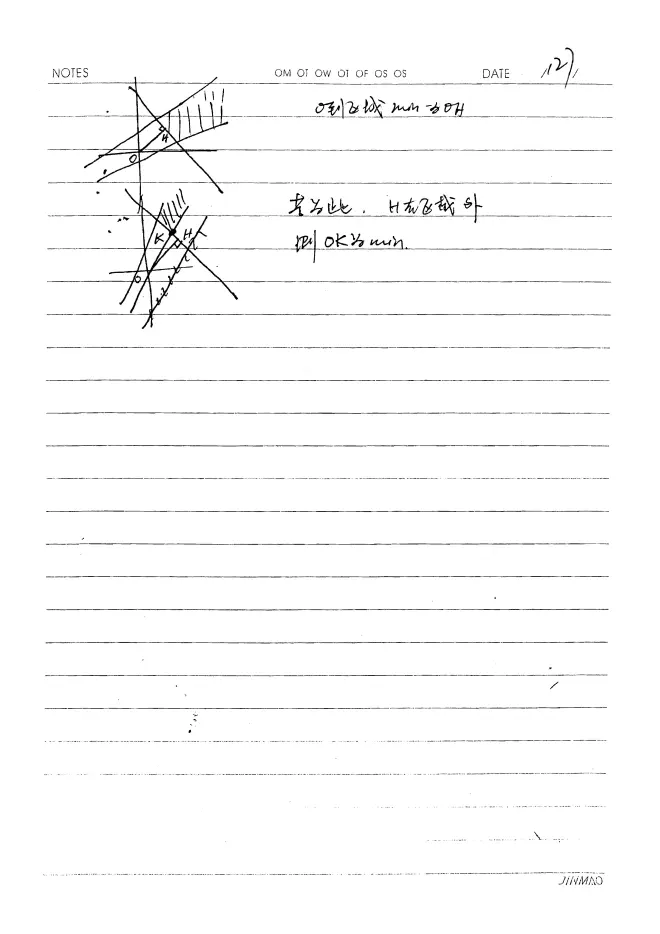 NOTES OM OT OW OT OF OS OS DATE 127
O到区域min为OH
O H
若为此. H在区域外
则OK为min.
K H
O
JINMAO